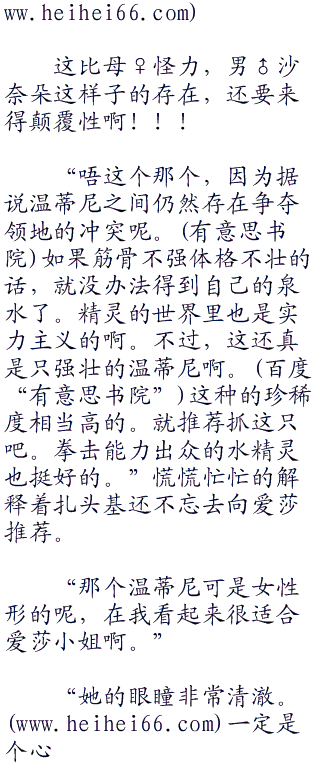 ww.heihei66.com)
这比母♀怪力，男♂沙
奈朵这样子的存在，还要来
得颠覆性啊！！！
“唔这个那个，因为据
说温蒂尼之间仍然存在争夺
领地的冲突呢。(有意思书
院)如果筋骨不强体格不壮的
话，就没办法得到自己的泉
水了。精灵的世界里也是实
力主义的啊。不过，这还真
是只强壮的温蒂尼啊。(百度
“有意思书院”)这种的珍稀
度相当高的。就推荐抓这只
吧。拳击能力出众的水精灵
也挺好的。”慌慌忙忙的解
释着扎头基还不忘去向爱莎
推荐。
“那个温蒂尼可是女性
形的呢，在我看起来很适合
爱莎小姐啊。”
“她的眼瞳非常清澈。
(www.heihei66.com)一定是
个心